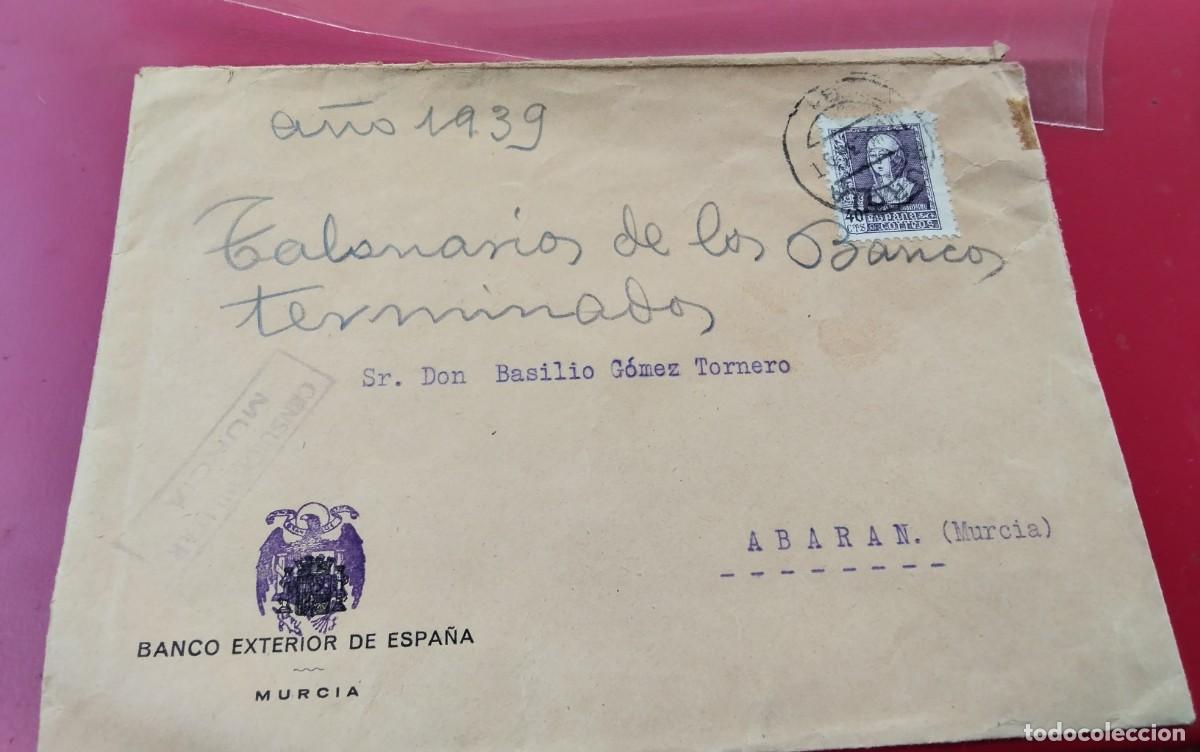 año 1939
Talonarios de los Bancos
terminados
40
CTS
ESPAÑA
CORREOS
Sr. Don Basilio Gómez Tornero
CENSURA MILITAR
MURCIA
A B A R A N. (Murcia)
BANCO EXTERIOR DE ESPAÑA
MURCIA
todocoleccion